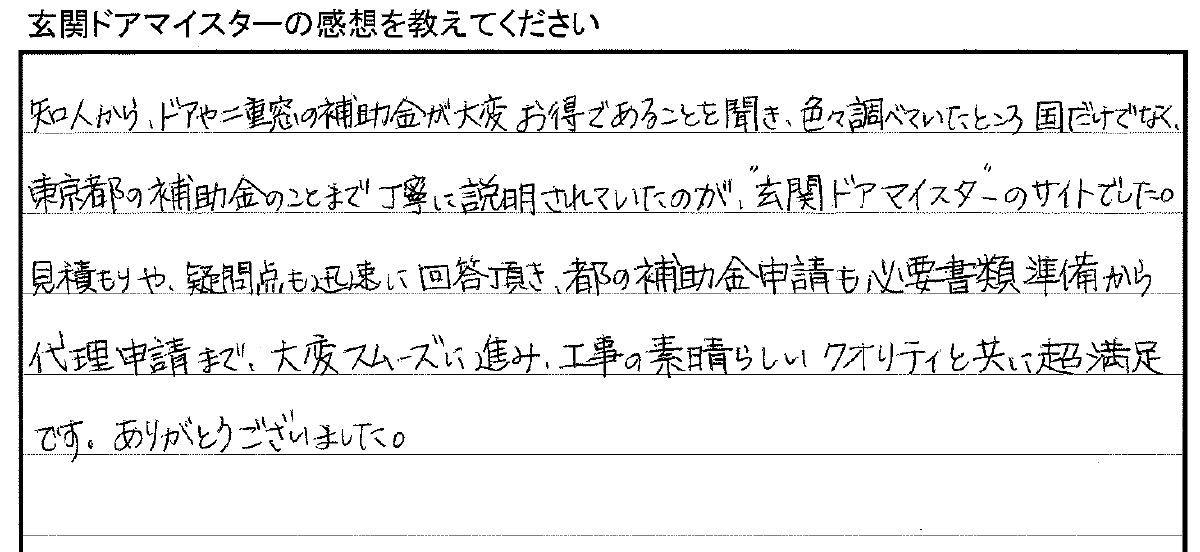 玄関ドアマイスターの感想を教えてください
知人から、ドアや二重窓の補助金が大変お得であることを聞き、色々調べていたところ国だけでなく、
東京都の補助金のことまで丁寧に説明されていたのが、"玄関ドアマイスター"のサイトでした。
見積もりや、疑問点も迅速に回答頂き、都の補助金申請も必要書類準備から
代理申請まで、大変スムーズに進み、工事の素晴らしいクオリティと共に超満足
です。ありがとうございました。